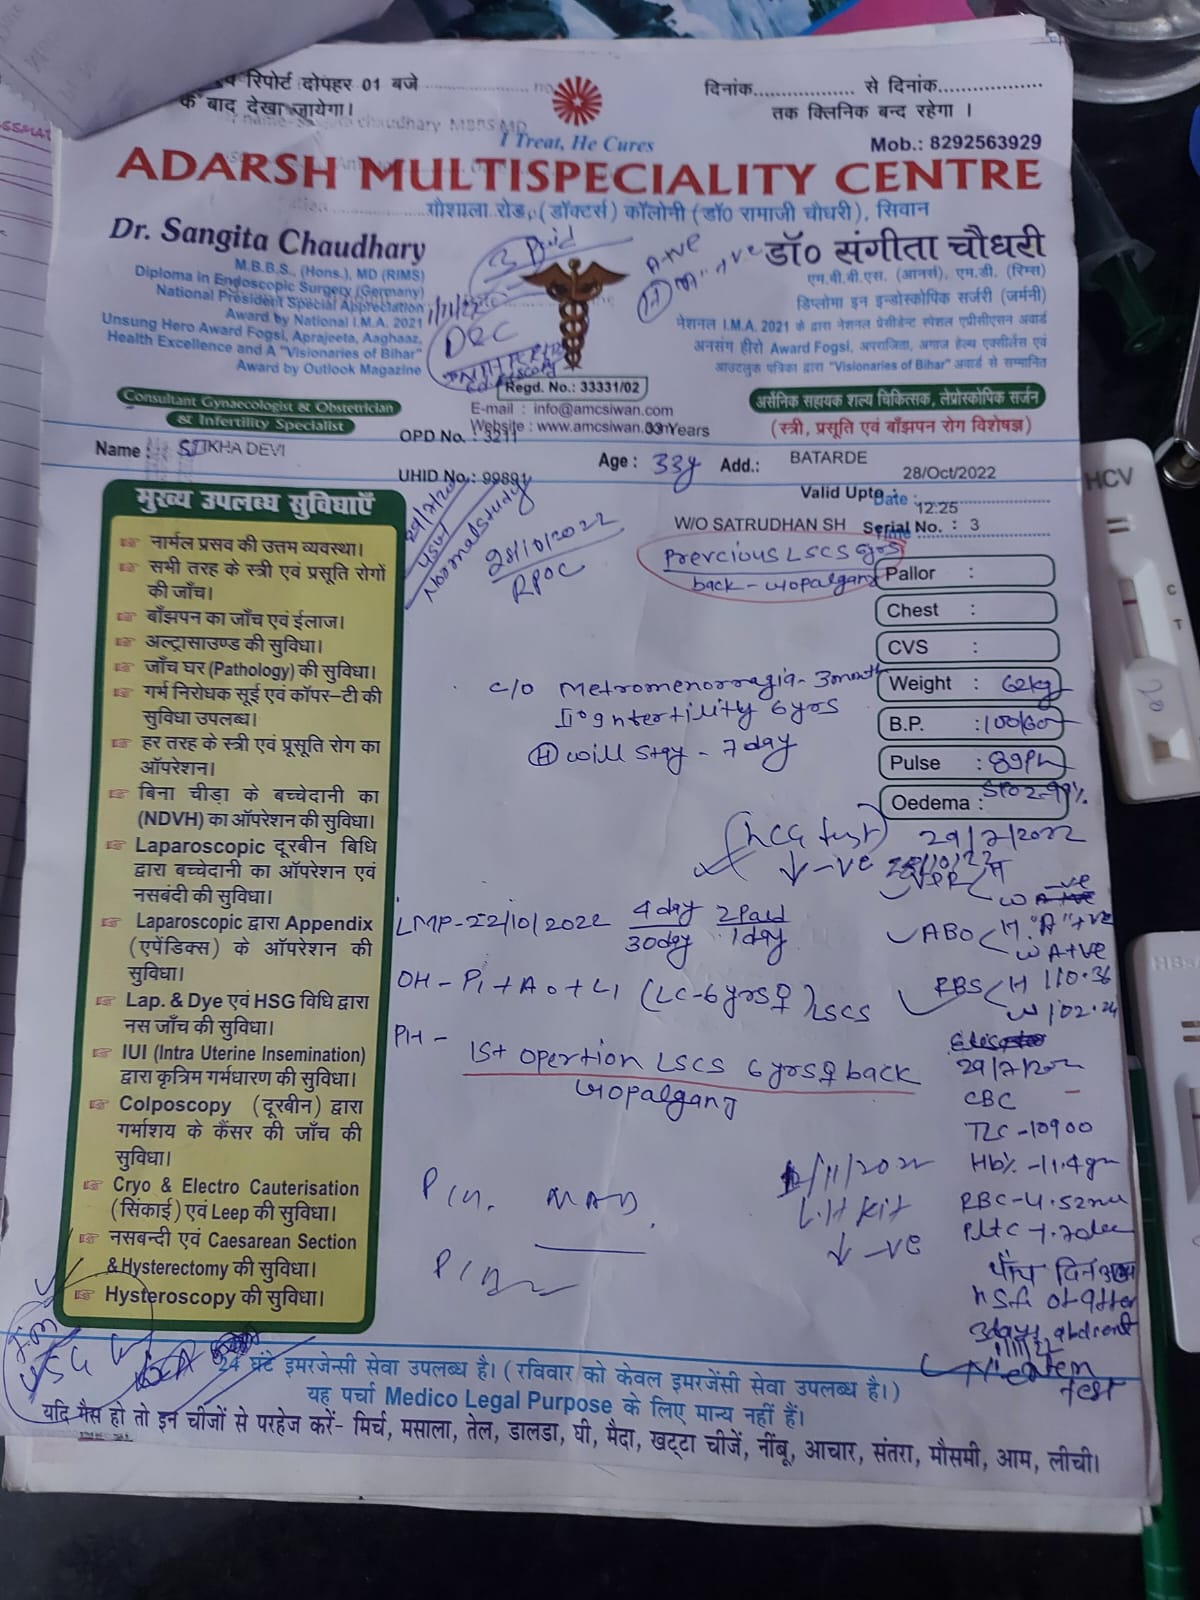 रिपोर्ट दोपहर 01 बजे
के बाद देखा जायेगा।
दिनांक................. से दिनांक..................
तक क्लिनिक बन्द रहेगा ।
chaudhary MBBS MD
I Treat, He Cures
Mob.: 8292563929
ADARSH MULTISPECIALITY CENTRE
गौशाला रोड, (डॉक्टर्स) कॉलोनी (डॉ० रामाजी चौधरी), सिवान
Dr. Sangita Chaudhary
M.B.B.S., (Hons.), MD (RIMS)
Diploma in Endoscopic Surgery (Germany)
National President Special Appreciation
Award by National I.M.A. 2021
Unsung Hero Award Fogsi, Aprajeeta, Aaghaaz,
Health Excellence and A "Visionaries of Bihar"
Award by Outlook Magazine
Consultant Gynaecologist & Obstetrician
& Infertility Specialist
3 Paid
1/11/22
DRC
A+ve
डॉ० संगीता चौधरी
एम.बी.बी.एस. (आनर्स), एम.डी. (रिम्स)
डिप्लोमा इन इन्डोस्कोपिक सर्जरी (जर्मनी)
नेशनल I.M.A. 2021 के द्वारा नेशनल प्रेसीडेन्ट स्पेशल एप्रीसीएसन अवार्ड
अनसंग हीरो Award Fogsi, अपराजिता, अगाज हेल्थ एक्सीलेंस एवं
आउटलुक पत्रिका द्वारा "Visionaries of Bihar" अवार्ड से सम्मानित
Regd. No.: 33331/02
E-mail : info@amcsiwan.com
Website : www.amcsiwan.com
03 Years
(स्त्री, प्रसूति एवं बाँझपन रोग विशेषज्ञ)
OPD No. : 3211
Name : DEVI
UHID No.: 99891
Age : 33y Add.: BATARDE
28/Oct/2022
Valid Upto :
Date :
12:25
Time :
W/O SATRUDHAN SH Serial No. : 3
29/7/2022
USG
Normal study
28/10/2022
RPOC
Prevcious LSCS 6yrs
back - Gopalganj
Pallor :
Chest :
CVS :
Weight : 62kg
B.P. : 100/60
Pulse : 89
SPO2-99%
Oedema :
c/o Metromenorragia - 3month
II° Intertility 6 yrs
(H) will stay - 7 day
HCG test
↓ -ve
29/7/2022
28/10/22
ABO H "A"+ve
W A+ve
RBS H 110.36
W 102.24
LMP-22/10/2022 4day/30day 2Pad/1day
OH - P1 + A0 + L1 (LC-6 yrs♀) LSCS
PH - Ist opertion LSCS 6 yrs♀ back
Gopalganj
29/7/202
CBC
TLC -10900
Hb% -11.4gm
RBC-4.52
/11/2022
Kit
↓ -ve
P/V. NAD.
3days
test
मुख्य उपलब्ध सुविधाएँ
नार्मल प्रसव की उत्तम व्यवस्था।
सभी तरह के स्त्री एवं प्रसूति रोगों
की जाँच।
बाँझपन का जाँच एवं ईलाज।
अल्ट्रासाउण्ड की सुविधा।
जाँच घर (Pathology) की सुविधा।
गर्भ निरोधक सूई एवं कॉपर–टी की
सुविधा उपलब्ध।
हर तरह के स्त्री एवं प्रसूति रोग का
ऑपरेशन।
बिना चीड़ा के बच्चेदानी का
(NDVH) का ऑपरेशन की सुविधा।
Laparoscopic दूरबीन बिधि
द्वारा बच्चेदानी का ऑपरेशन एवं
नसबंदी की सुविधा।
Laparoscopic द्वारा Appendix
(एपेंडिक्स) के ऑपरेशन की
सुविधा।
Lap. & Dye एवं HSG विधि द्वारा
नस जाँच की सुविधा।
IUI (Intra Uterine Insemination)
द्वारा कृत्रिम गर्भधारण की सुविधा।
Colposcopy (दूरबीन) द्वारा
गर्भाशय के कैंसर की जाँच की
सुविधा।
Cryo & Electro Cauterisation
(सिंकाई) एवं Leep की सुविधा।
नसबन्दी एवं Caesarean Section
& Hysterectomy की सुविधा।
Hysteroscopy की सुविधा।
24 घंटे इमरजेन्सी सेवा उपलब्ध है। ( रविवार को केवल इमरजेंसी सेवा उपलब्ध है।)
यह पर्चा Medico Legal Purpose के लिए मान्य नहीं हैं।
यदि गैस हो तो इन चीजों से परहेज करें- मिर्च, मसाला, तेल, डालडा, घी, मैदा, खट्टा चीजें, नींबू, आचार, संतरा, मौसमी, आम, लीची।
HCV
C
T